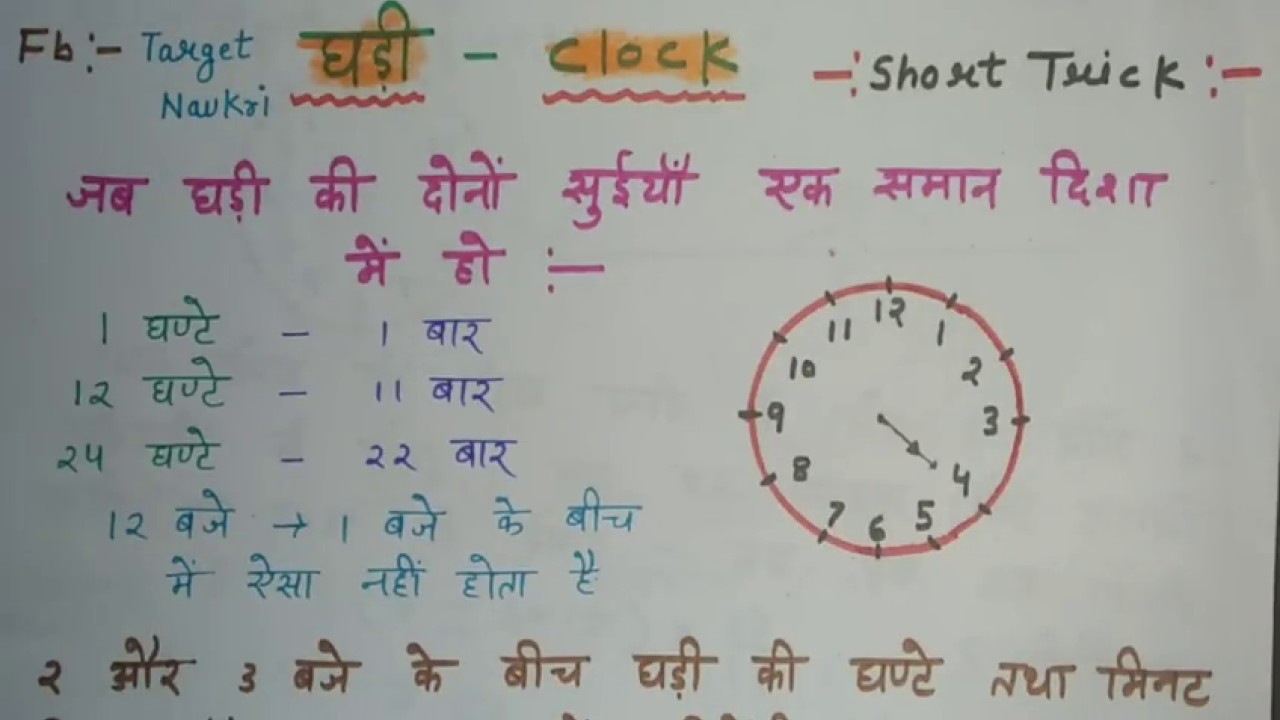 Fb :- Target घड़ी - Clock -: Short Trick :-
Navkri
जब घड़ी की दोनों सुईयाँ एक समान दिशा
में हो :-
1 घण्टे - 1 बार
12 घण्टे - 11 बार
24 घण्टे - 22 बार
12 बजे → 1 बजे के बीच
में ऐसा नहीं होता है
12
11
1
10
2
9
3
8
4
7
5
6
2 और 3 बजे के बीच घड़ी की घण्टे तथा मिनट